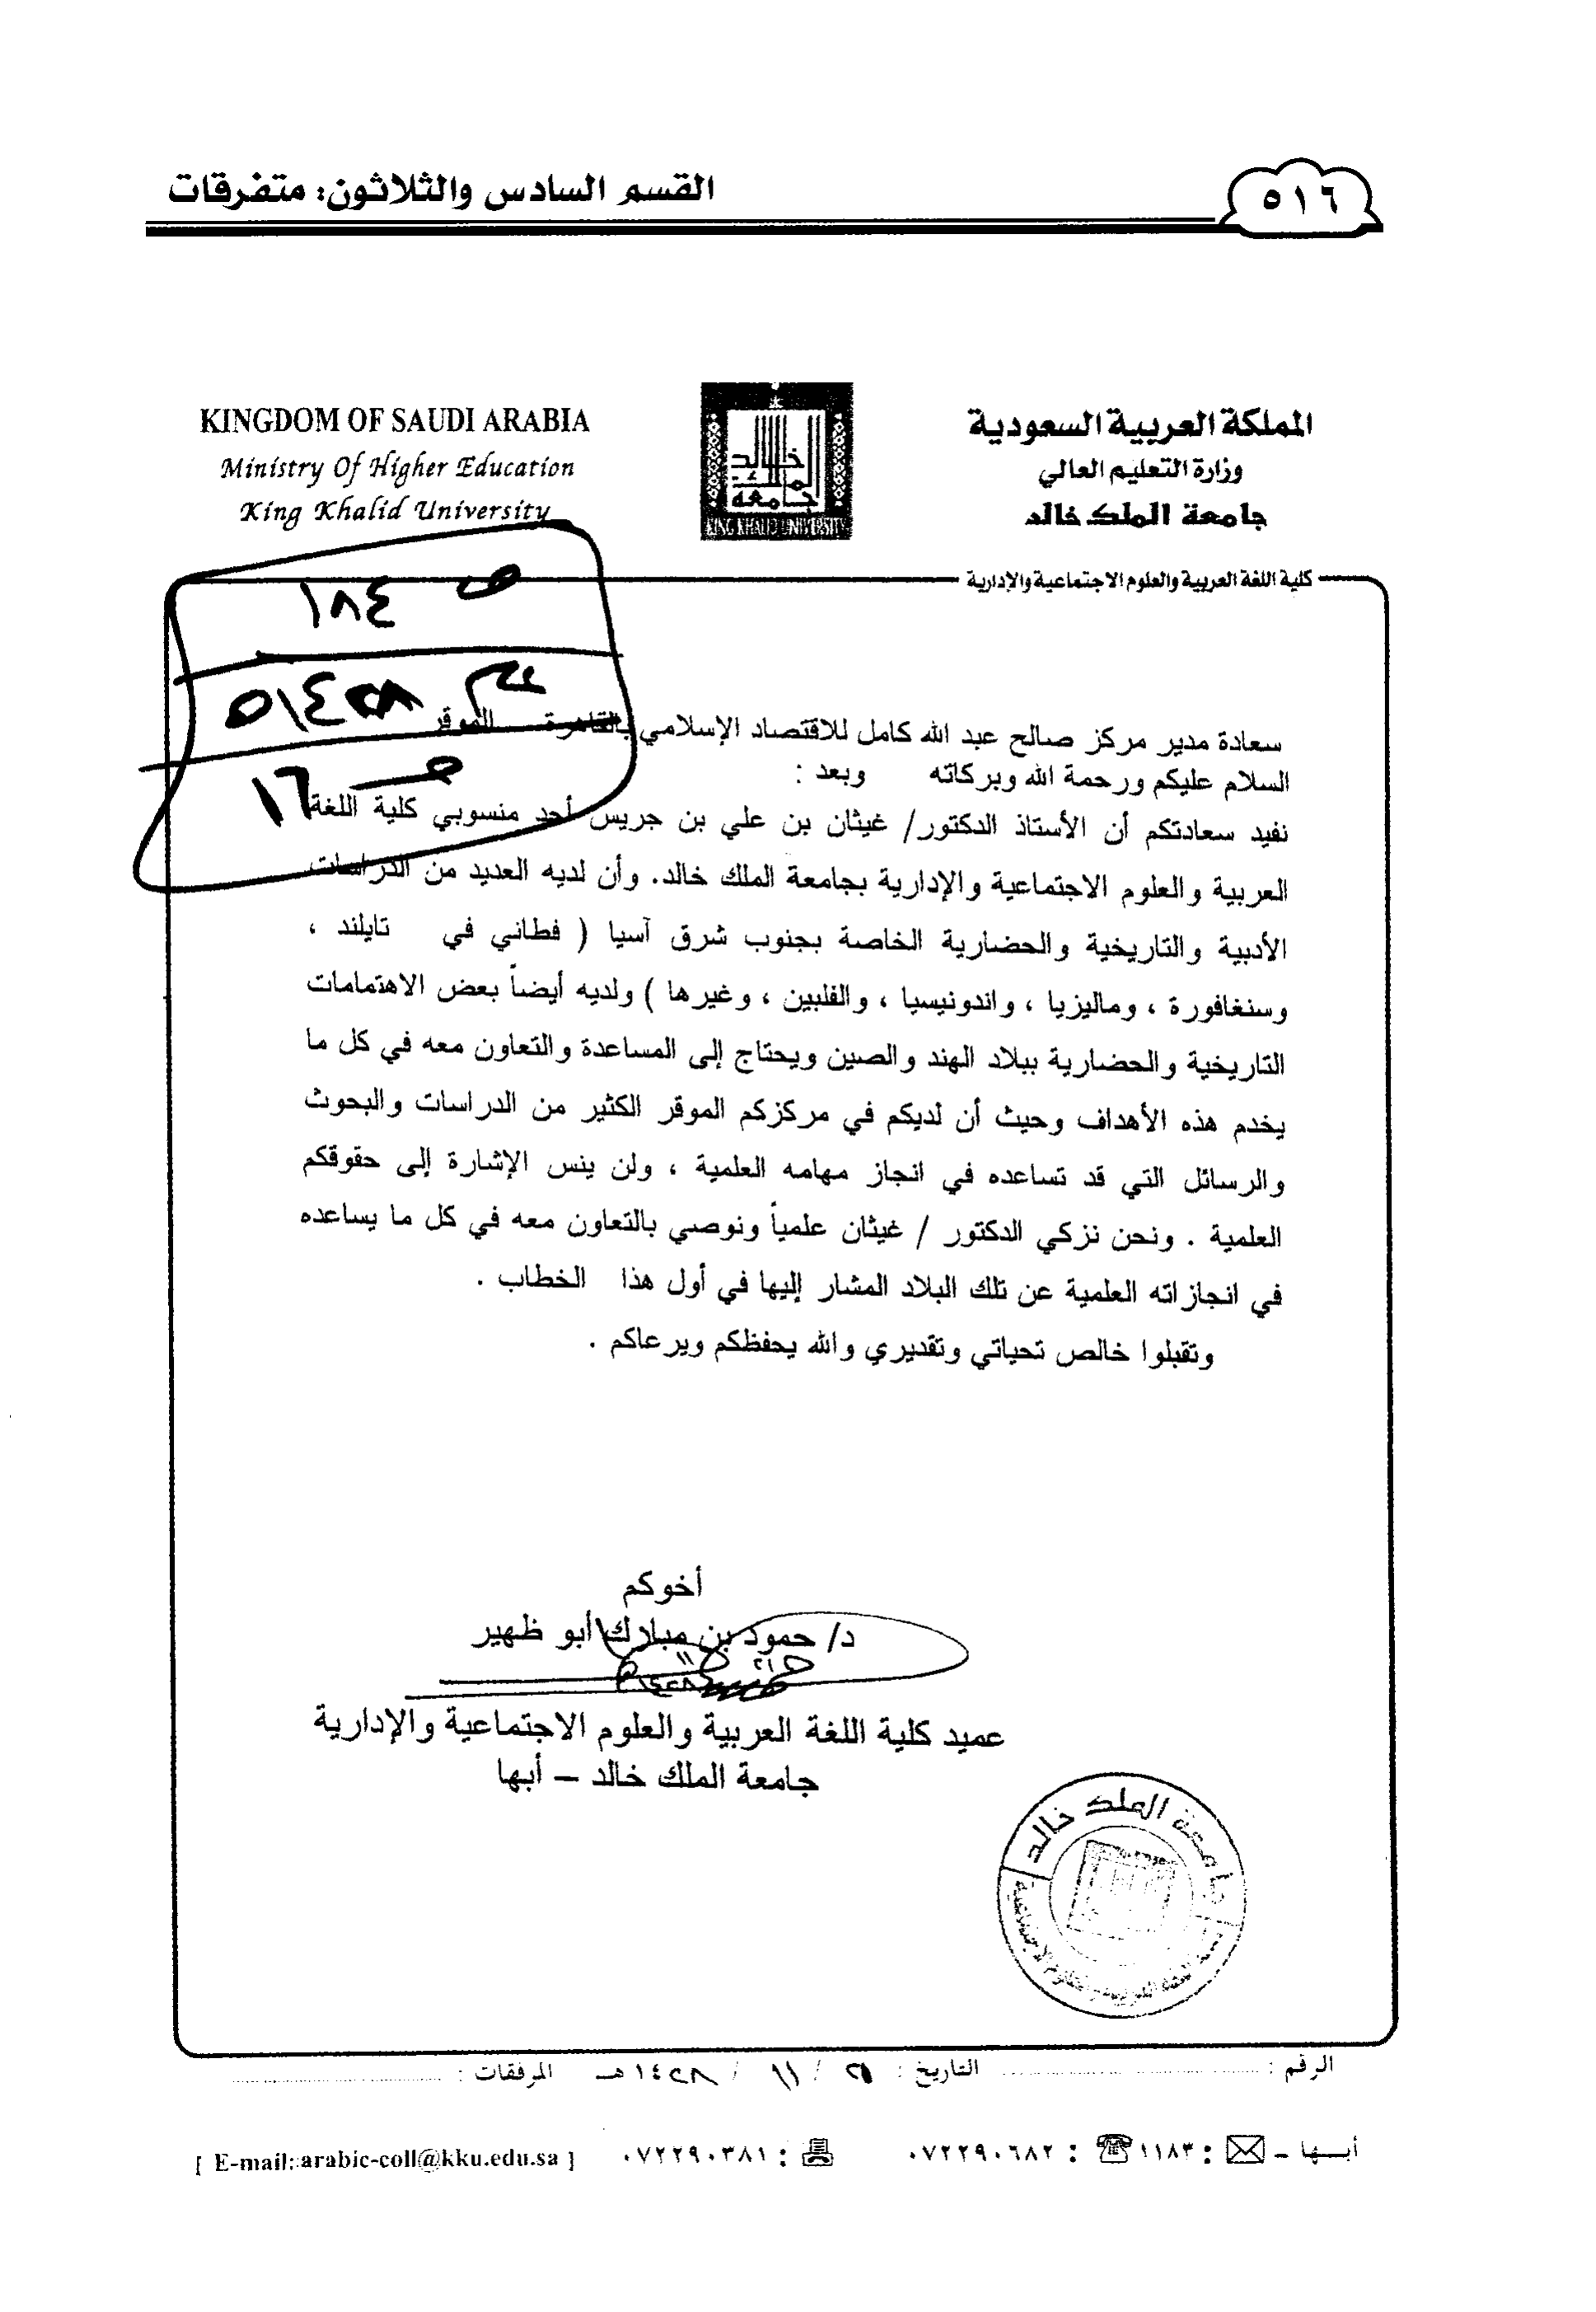 القسم السادس والثلاثون: متفرقات
٥١٦
المملكة العربية السعودية
وزارة التعليم العالي
جامعة الملك خالد
KINGDOM OF SAUDI ARABIA
Ministry Of Higher Education
King Khalid University
جامعة الملك خالد
KING KHALID UNIVERSITY
كلية اللغة العربية والعلوم الاجتماعية والإدارية
ص ٤٨١
ص ١٦
سعادة مدير مركز صالح عبد الله كامل للاقتصاد الإسلامي بالقاهرة الموقر
السلام عليكم ورحمة الله وبركاته وبعد :
نفيد سعادتكم أن الأستاذ الدكتور/ غيثان بن علي بن جريس أحد منسوبي كلية اللغة
العربية والعلوم الاجتماعية والإدارية بجامعة الملك خالد. وأن لديه العديد من الدراسات
الأدبية والتاريخية والحضارية الخاصة بجنوب شرق آسيا ( فطاني في تايلند ،
وسنغافورة ، وماليزيا ، واندونيسيا ، والفلبين ، وغيرها ) ولديه أيضاً بعض الاهتمامات
التاريخية والحضارية ببلاد الهند والصين ويحتاج إلى المساعدة والتعاون معه في كل ما
يخدم هذه الأهداف وحيث أن لديكم في مركزكم الموقر الكثير من الدراسات والبحوث
والرسائل التي قد تساعده في انجاز مهامه العلمية ، ولن ينس الإشارة إلى حقوقكم
العلمية . ونحن نزكي الدكتور / غيثان علمياً ونوصي بالتعاون معه في كل ما يساعده
في انجازاته العلمية عن تلك البلاد المشار إليها في أول هذا الخطاب .
وتقبلوا خالص تحياتي وتقديري والله يحفظكم ويرعاكم .
أخوكم
د/ حمود بن مبارك أبو ظهير
عميد كلية اللغة العربية والعلوم الاجتماعية والإدارية
جامعة الملك خالد – أبها
جامعة الملك خالد
الرقم : التاريخ : / ١١ / ١٤٢٨ هـ المرفقات :
أبــها – : ١١٨٣ : ٠٧٢٢٩٠٦٨٢ : ٠٧٢٢٩٠٣٨١ [ E-mail: arabic-coll@kku.edu.sa ]